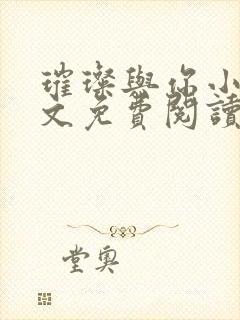 璀璨與你小
文免費閱讀
堂奧